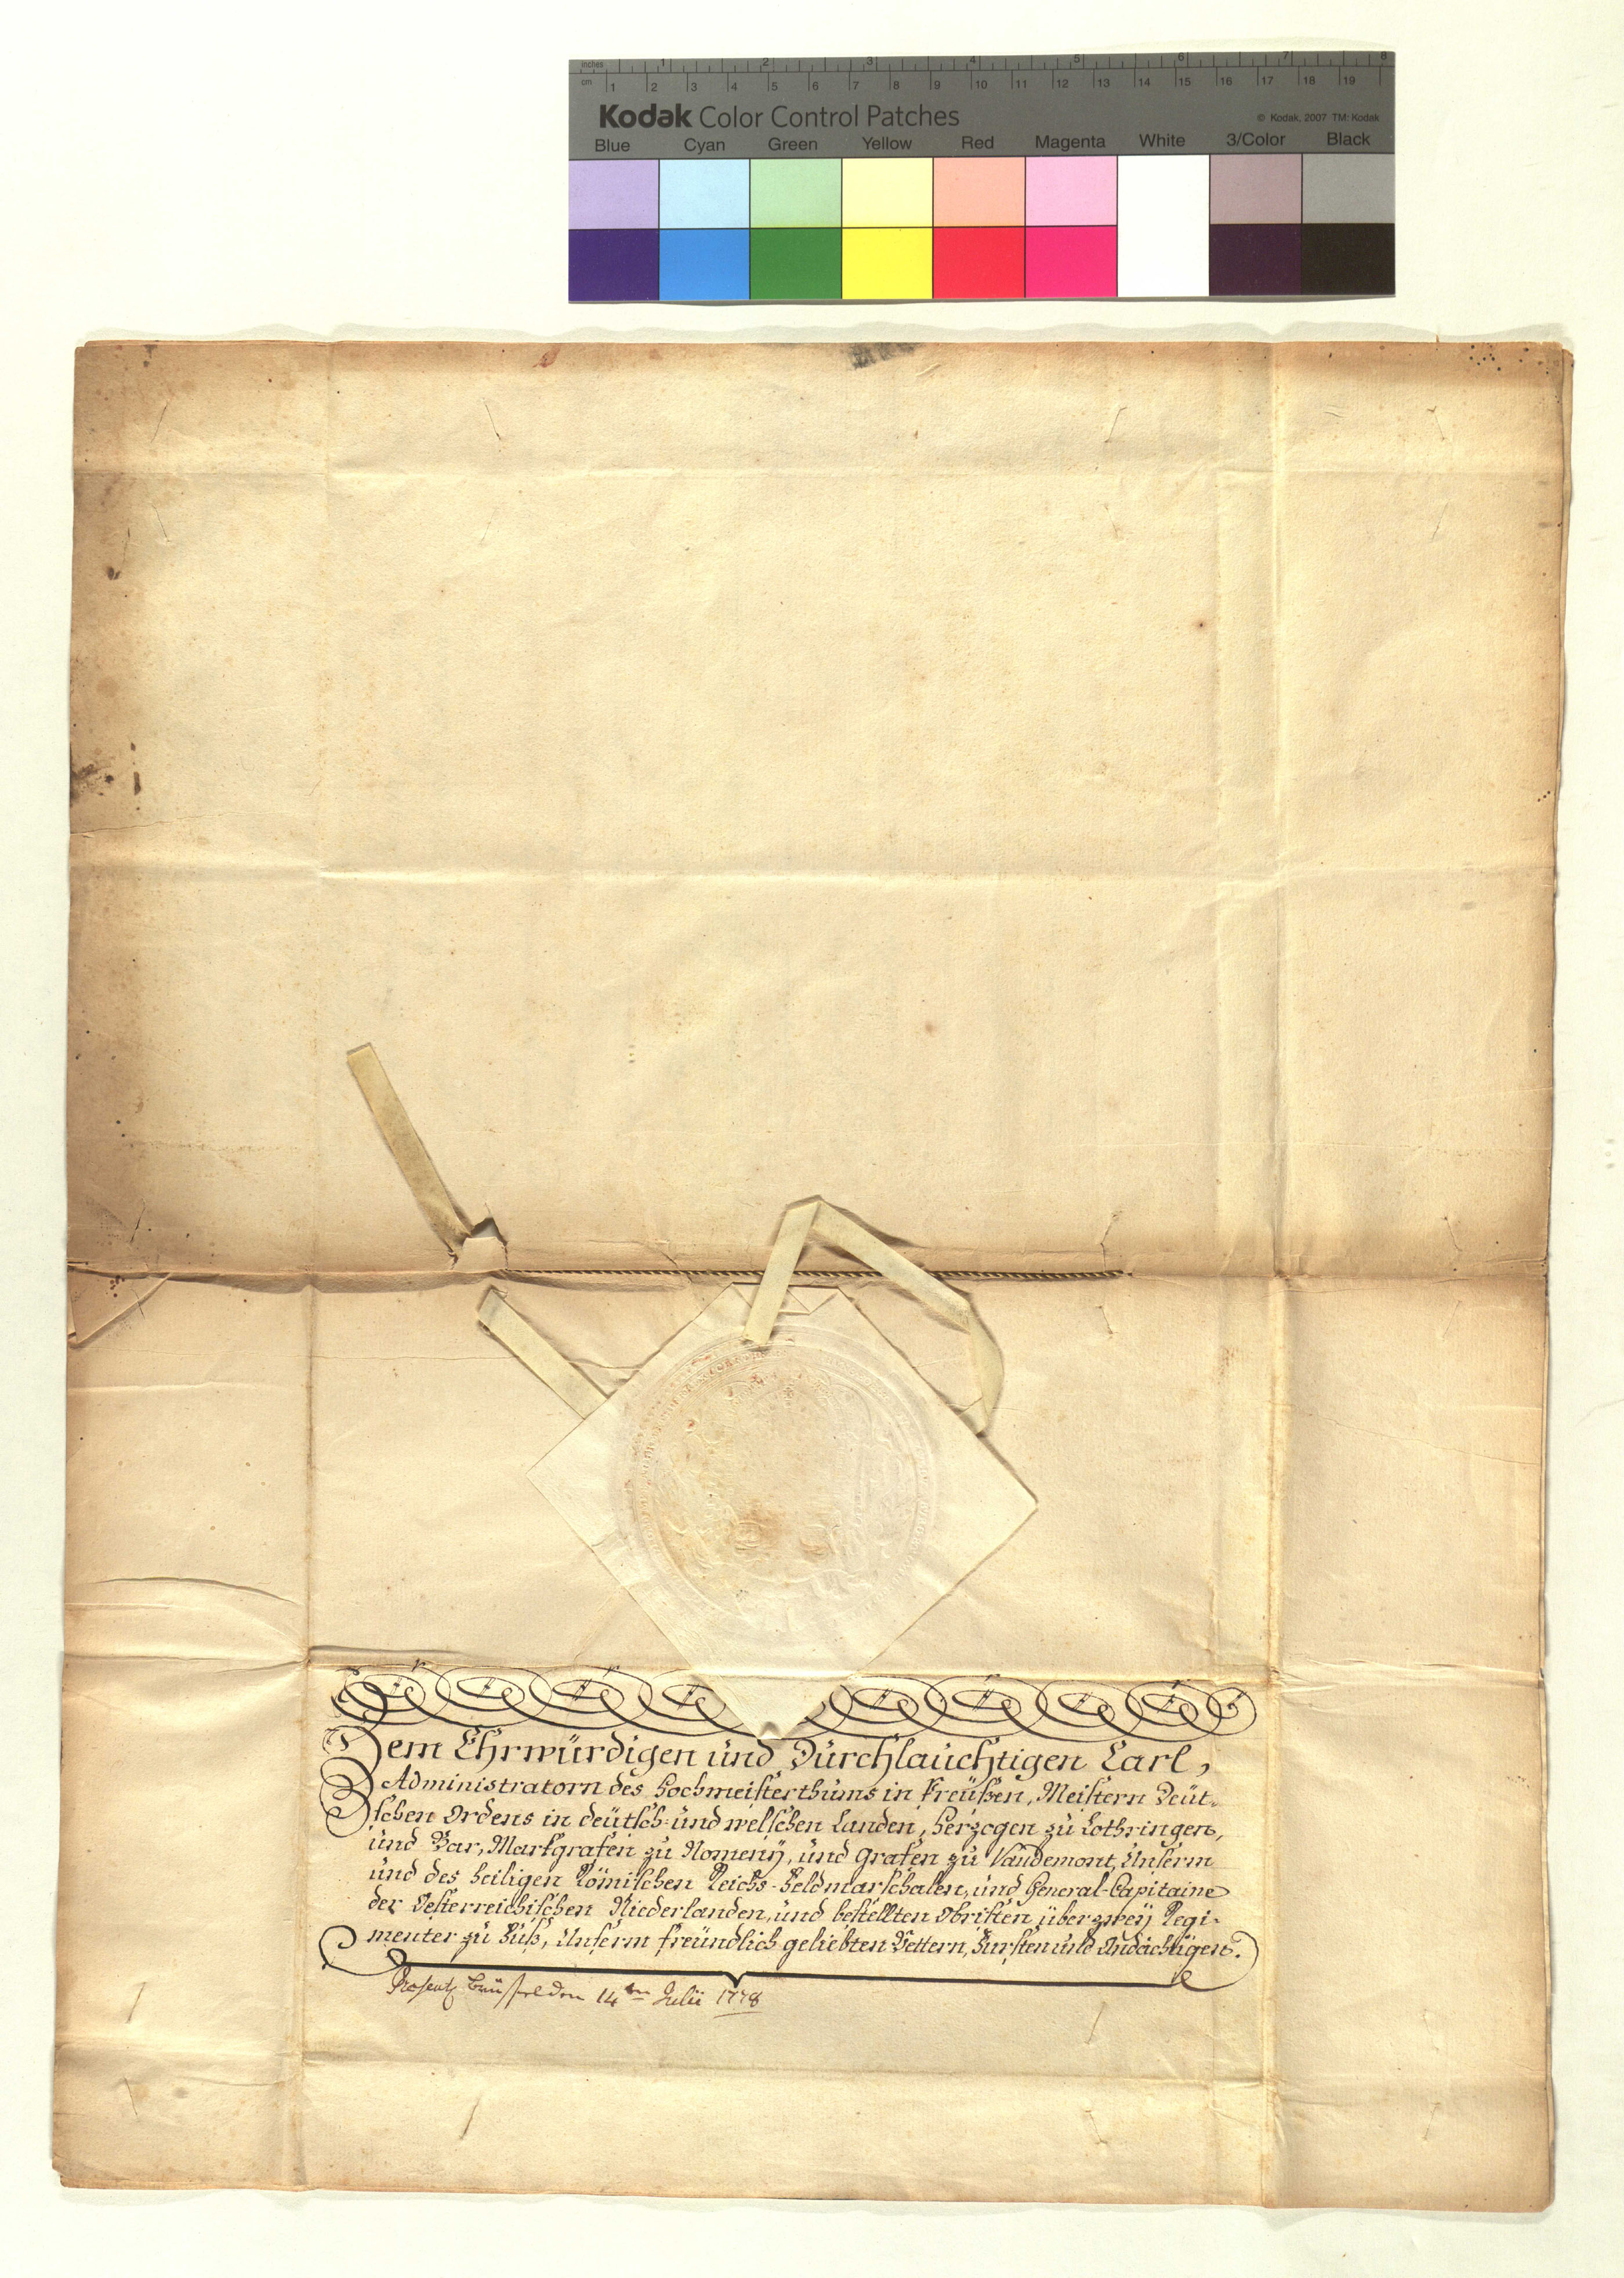 inches 1 2 3 4 5 6 7 8
cm 1 2 3 4 5 6 7 8 9 10 11 12 13 14 15 16 17 18 19
Kodak Color Control Patches © Kodak, 2007 TM: Kodak
Blue Cyan Green Yellow Red Magenta White 3/Color Black
Dem Ehrwürdigen und Durchlauchtigen Carl,
Administratorn des Hochmeisterthums in Preüßen, Meistern Deüt-
schen Ordens in deütsch- und welschen Landen, Herzogen zu Lothringen,
und Bar, Markgrafen zu Nomenÿ, und Grafen zu Vaudemont, Unserm
und des heiligen Römischen Reichs-Feldmarschalen, und General-Capitaine
der Oesterreichischen Niederlanden, und bestellten Obristen über zweÿ Regi-
menter zu Fuß, Unserm freündlich geliebten Vettern, Fursten und Andächtigen.
Präsentz Brüssel den 14ten Julii 1778